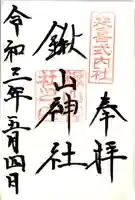 奉拝
延喜式内社
鍬山神社
令和三年五月四日